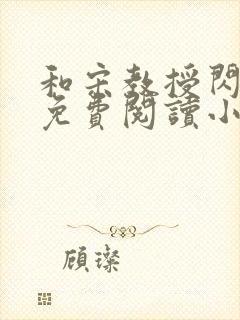 和宋教授閃
免費閱讀小
顧璨